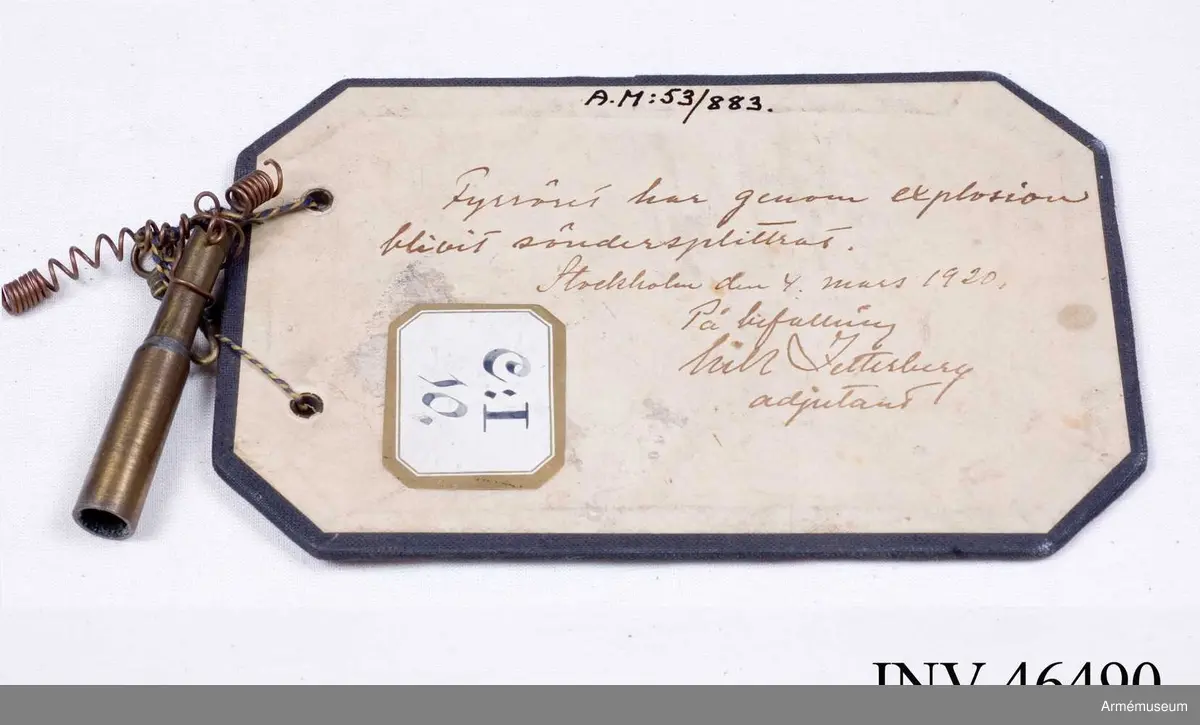 A.M:53/883.
Fyrröret har genom explosion
blivit söndersplittrat.
Stockholm den 4. mars 1920.
På befallning
Zetterberg
adjutant
I:2
10.
INV 46490
Armémuseum